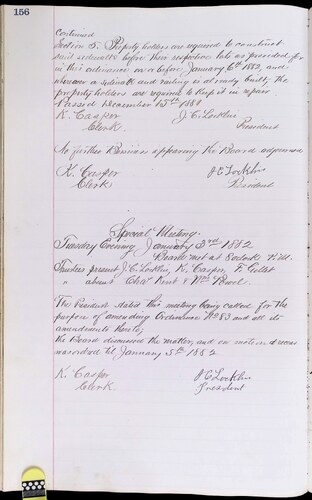 156
Continued
Section 5. Property holders are required to construct
said sidewalks before their respective lots as provided for
in this ordinance on or before January 6th 1882, and
whenever a sidewalk and railing is already built, the
property holders are required to keep it in repair.
Passed December 15th 1881
K. Casper J. C. Locklin
Clerk. President
No further Business appearing the Board adjourned
K. Casper J C Locklin
Clerk President
Special Meeting.
Tuesday Evening January 3rd 1882
Board met at 8 oclock P.M.
Trustees present J. C. Locklin, K. Casper, F. Gillet
" absent Chas Kent & Wm Powel.
The President stated this meeting being called for the
purpose of amending Ordinance No 83 and all its
amendments hereto,
the Board discussed the matter, and on motion a recess
was ordered til January 5th 1882
K. Casper J C Locklin
Clerk. President